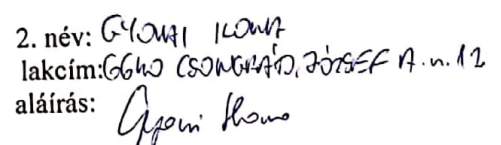 2. név: GYOVAI ILONA
lakcím: 6640 CSONGRÁD, JÓZSEF A. u. 12
aláírás: Gyovai Ilona